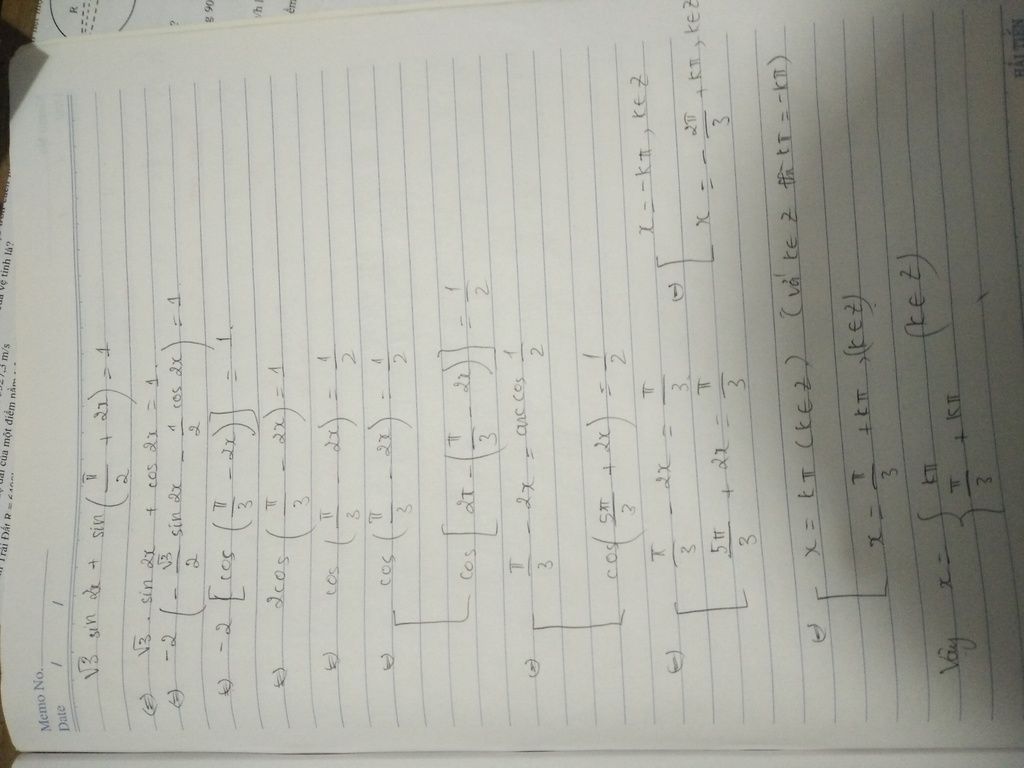 Memo No.
Date / /
√3 sin 2x + sin(π/2 + 2x) = 1
(=) √3 . sin 2x + cos 2x = 1
(=) -2 (-√3/2 sin 2x - 1/2 cos 2x) = 1
(=) -2 [cos (π/3 - 2x)] = 1
(=) 2cos (π/3 - 2x) = 1
(=) cos (π/3 - 2x) = 1/2
(=) [ cos (π/3 - 2x) = 1/2
cos [2π - (π/3 - 2x)] = 1/2
(=) [ π/3 - 2x = arccos 1/2
cos(5π/3 + 2x) = 1/2
(=) [ π/3 - 2x = π/3 (=) [ x = -kπ, k∈Z
5π/3 + 2x = π/3 x = -2π/3 + kπ, k∈Z
(=) [ x = kπ (k∈Z) (vá k∈Z thì kπ = -kπ)
x = π/3 + kπ, (k∈Z)
Vậy x = { kπ (k∈Z)
π/3 + kπ }
HẢI TIẾN
R